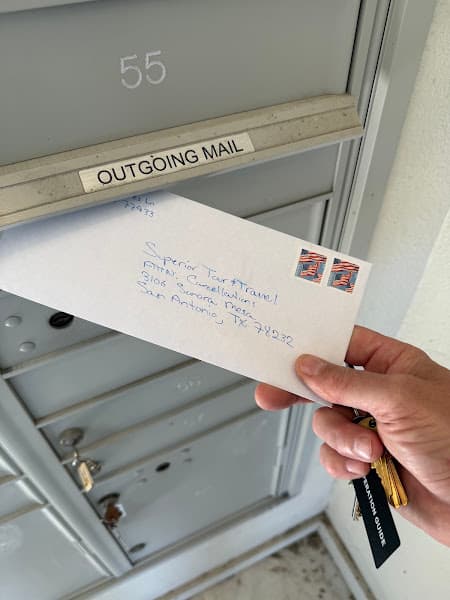 55
OUTGOING MAIL
77433
Superior Tar & Travel
ATTN: Cancellations
3106 Sonora Mesa
San Antonio, TX 78232
PERATION GUIDE